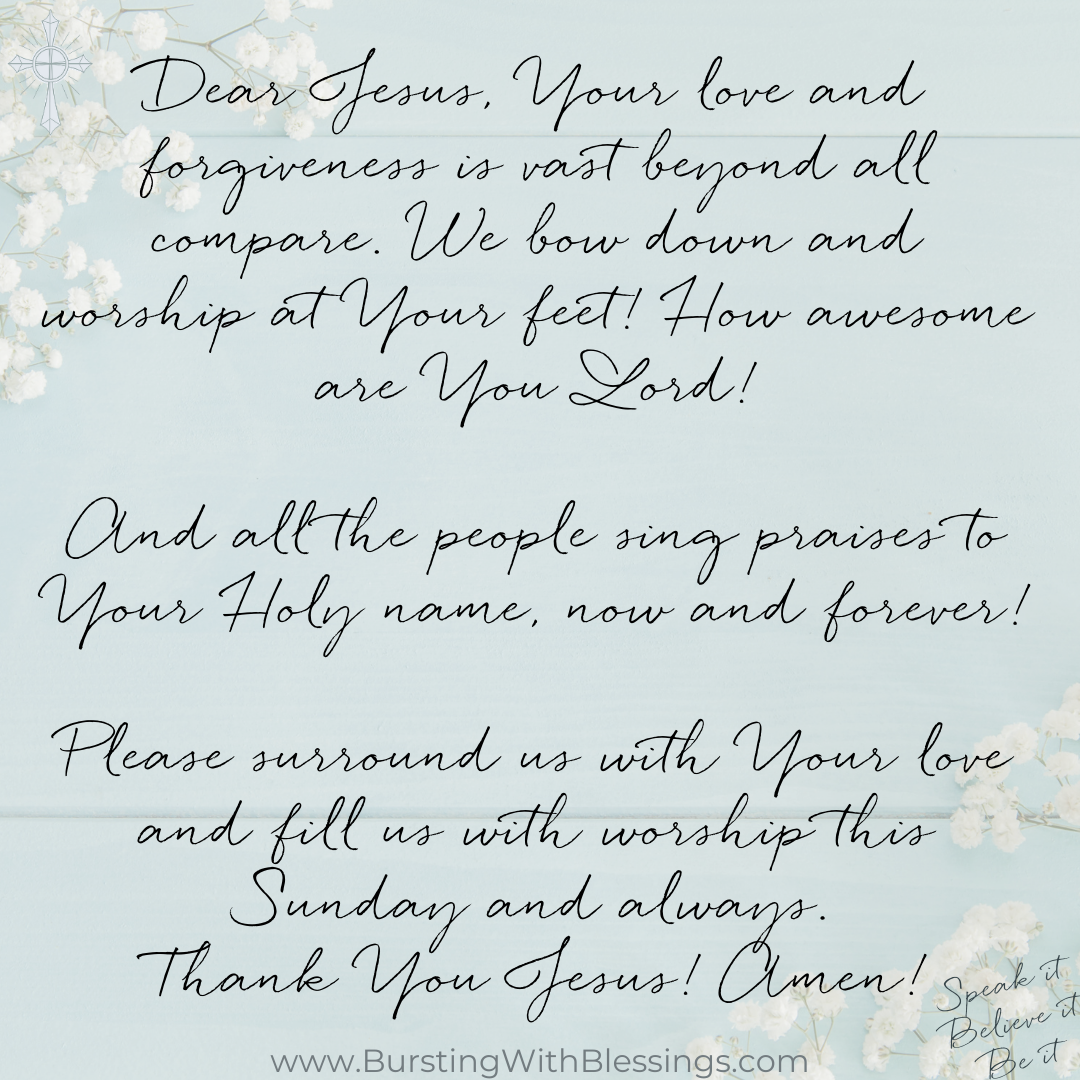 Dear Jesus, Your love and
forgiveness is vast beyond all
compare. We bow down and
worship at Your feet! How awesome
are You Lord!
And all the people sing praises to
Your Holy name, now and forever!
Please surround us with Your love
and fill us with worship this
Sunday and always.
Thank You Jesus! Amen!
Speak it
Believe it
Be it
www.BurstingWithBlessings.com